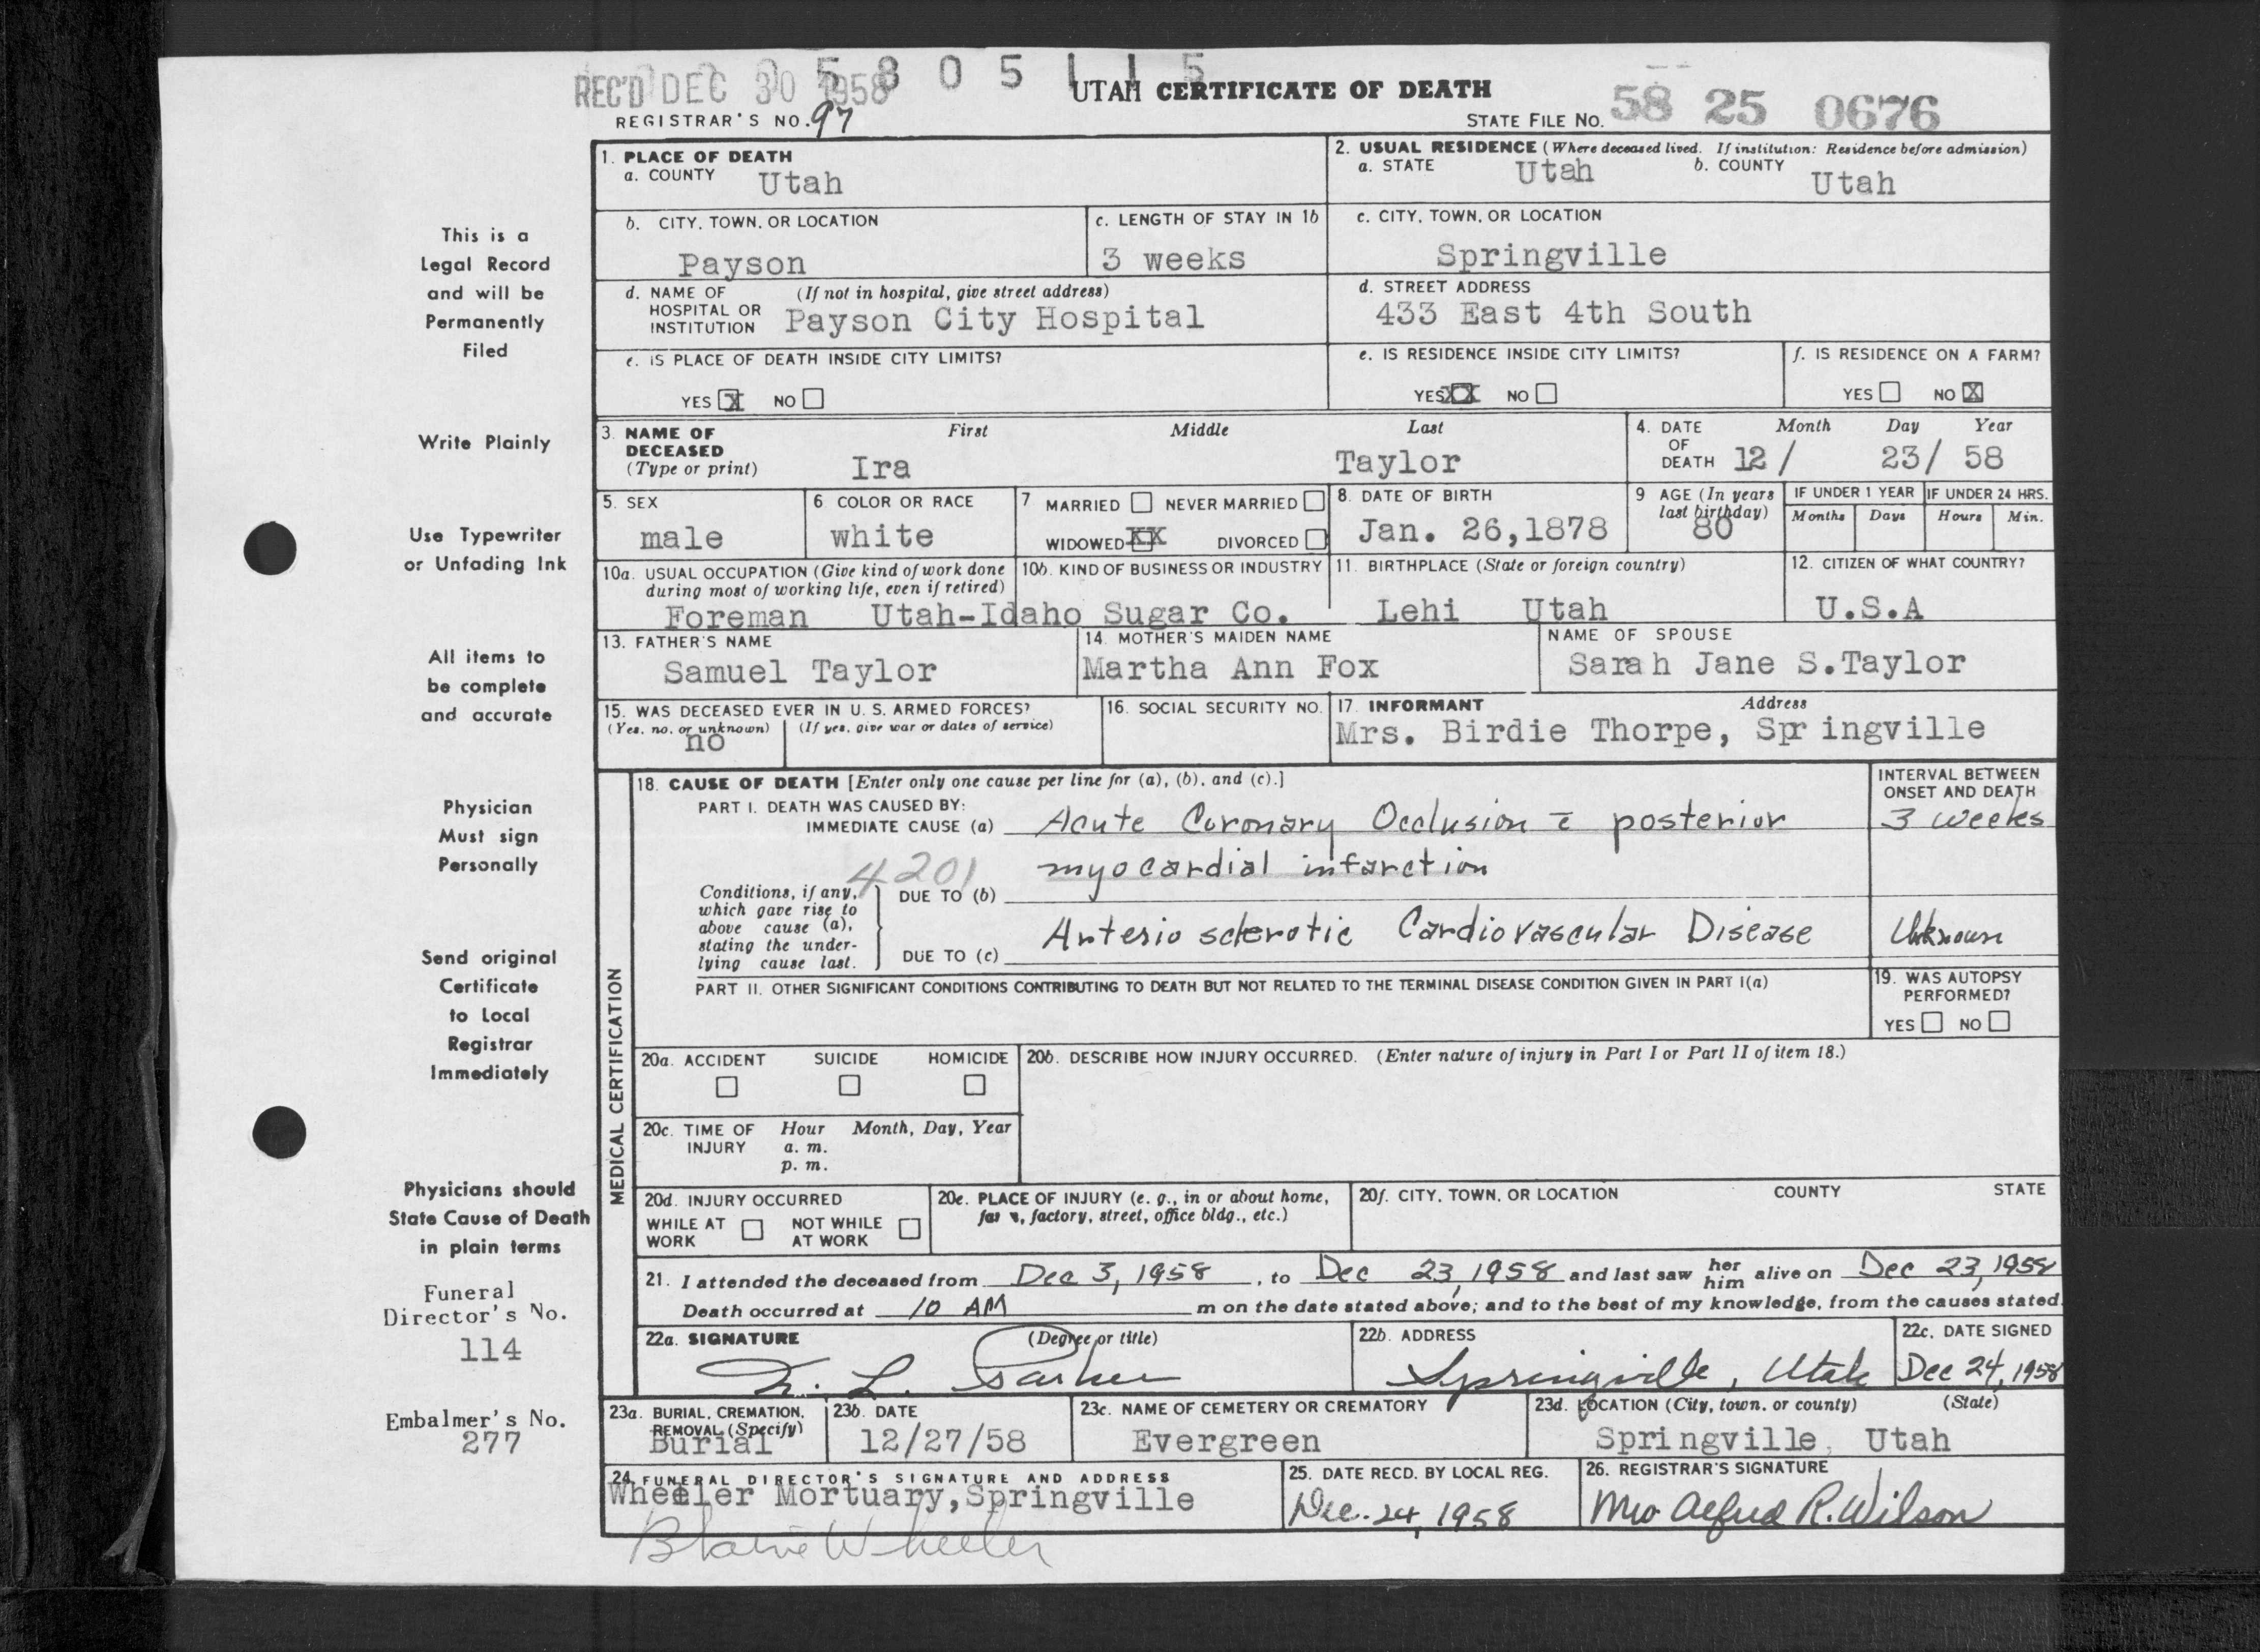 5805115
REC'D DEC 30 1958
UTAH CERTIFICATE OF DEATH
REGISTRAR'S NO. 97
STATE FILE NO. 58 25 0676
1. PLACE OF DEATH
a. COUNTY Utah
2. USUAL RESIDENCE (Where deceased lived. If institution: Residence before admission)
a. STATE Utah b. COUNTY Utah
b. CITY, TOWN, OR LOCATION
Payson
c. LENGTH OF STAY IN 1b
3 weeks
c. CITY, TOWN, OR LOCATION
Springville
d. NAME OF HOSPITAL OR INSTITUTION (If not in hospital, give street address)
Payson City Hospital
d. STREET ADDRESS
433 East 4th South
e. IS PLACE OF DEATH INSIDE CITY LIMITS?
YES X NO
e. IS RESIDENCE INSIDE CITY LIMITS?
YES XX NO
f. IS RESIDENCE ON A FARM?
YES NO X
3. NAME OF DECEASED (Type or print)
First Middle Last
Ira Taylor
4. DATE OF DEATH Month Day Year
12/ 23/ 58
5. SEX
male
6 COLOR OR RACE
white
7 MARRIED NEVER MARRIED
WIDOWED XX DIVORCED
8. DATE OF BIRTH
Jan. 26,1878
9 AGE (In years last birthday)
80
IF UNDER 1 YEAR IF UNDER 24 HRS.
Months Days Hours Min.
10a. USUAL OCCUPATION (Give kind of work done during most of working life, even if retired)
10b. KIND OF BUSINESS OR INDUSTRY
Foreman Utah-Idaho Sugar Co.
11. BIRTHPLACE (State or foreign country)
Lehi Utah
12. CITIZEN OF WHAT COUNTRY?
U.S.A
13. FATHER'S NAME
Samuel Taylor
14. MOTHER'S MAIDEN NAME
Martha Ann Fox
NAME OF SPOUSE
Sarah Jane S.Taylor
15. WAS DECEASED EVER IN U. S. ARMED FORCES?
(Yes, no, or unknown) (If yes, give war or dates of service)
no
16. SOCIAL SECURITY NO.
17. INFORMANT Address
Mrs. Birdie Thorpe, Springville
MEDICAL CERTIFICATION
18. CAUSE OF DEATH [Enter only one cause per line for (a), (b), and (c).]
INTERVAL BETWEEN ONSET AND DEATH
PART I. DEATH WAS CAUSED BY:
IMMEDIATE CAUSE (a) Acute Coronary Occlusion c̄ posterior 3 weeks
4201 myocardial infarction
Conditions, if any, which gave rise to above cause (a), stating the underlying cause last.
DUE TO (b)
DUE TO (c) Arterio sclerotic Cardiovascular Disease Unknown
PART II. OTHER SIGNIFICANT CONDITIONS CONTRIBUTING TO DEATH BUT NOT RELATED TO THE TERMINAL DISEASE CONDITION GIVEN IN PART I(a)
19. WAS AUTOPSY PERFORMED?
YES NO
20a. ACCIDENT SUICIDE HOMICIDE
20b. DESCRIBE HOW INJURY OCCURRED. (Enter nature of injury in Part I or Part II of item 18.)
20c. TIME OF INJURY Hour Month, Day, Year
a. m.
p. m.
20d. INJURY OCCURRED
WHILE AT WORK NOT WHILE AT WORK
20e. PLACE OF INJURY (e. g., in or about home, farm, factory, street, office bldg., etc.)
20f. CITY, TOWN, OR LOCATION COUNTY STATE
21. I attended the deceased from Dec 3, 1958, to Dec 23, 1958 and last saw her him alive on Dec 23, 1958
Death occurred at 10 AM m on the date stated above; and to the best of my knowledge, from the causes stated.
22a. SIGNATURE (Degree or title)
L. Parker
22b. ADDRESS
Springville, Utah
22c. DATE SIGNED
Dec 24, 1958
23a. BURIAL, CREMATION, REMOVAL (Specify)
Burial
23b. DATE
12/27/58
23c. NAME OF CEMETERY OR CREMATORY
Evergreen
23d. LOCATION (City, town, or county) (State)
Springville, Utah
24. FUNERAL DIRECTOR'S SIGNATURE AND ADDRESS
Wheeler Mortuary, Springville
Blaine Wheeler
25. DATE RECD. BY LOCAL REG.
Dec. 24, 1958
26. REGISTRAR'S SIGNATURE
Mrs Alfred R. Wilson
This is a
Legal Record
and will be
Permanently
Filed
Write Plainly
Use Typewriter
or Unfading Ink
All items to
be complete
and accurate
Physician
Must sign
Personally
Send original
Certificate
to Local
Registrar
Immediately
Physicians should
State Cause of Death
in plain terms
Funeral
Director's No.
114
Embalmer's No.
277